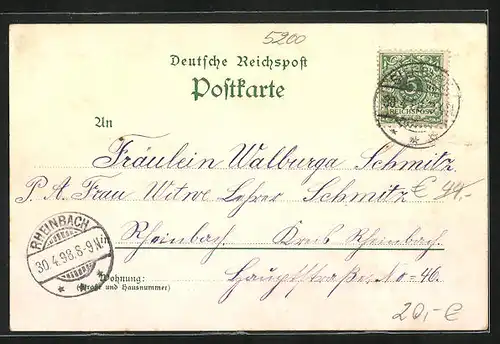 5200
Deutsche Reichspost
Postkarte
5
REICHSPOST
30.4.98
An
Fräulein Walburga Schmitz.
P. A. Frau Witwe Lehrer Schmitz
€ 44,-
RHEINBACH
30.4.98.8-9N.
in
Rheinbach Kreis Rheinbach.
Wohnung:
(Straße und Hausnummer)
Hauptstraße No=46.
20,-€